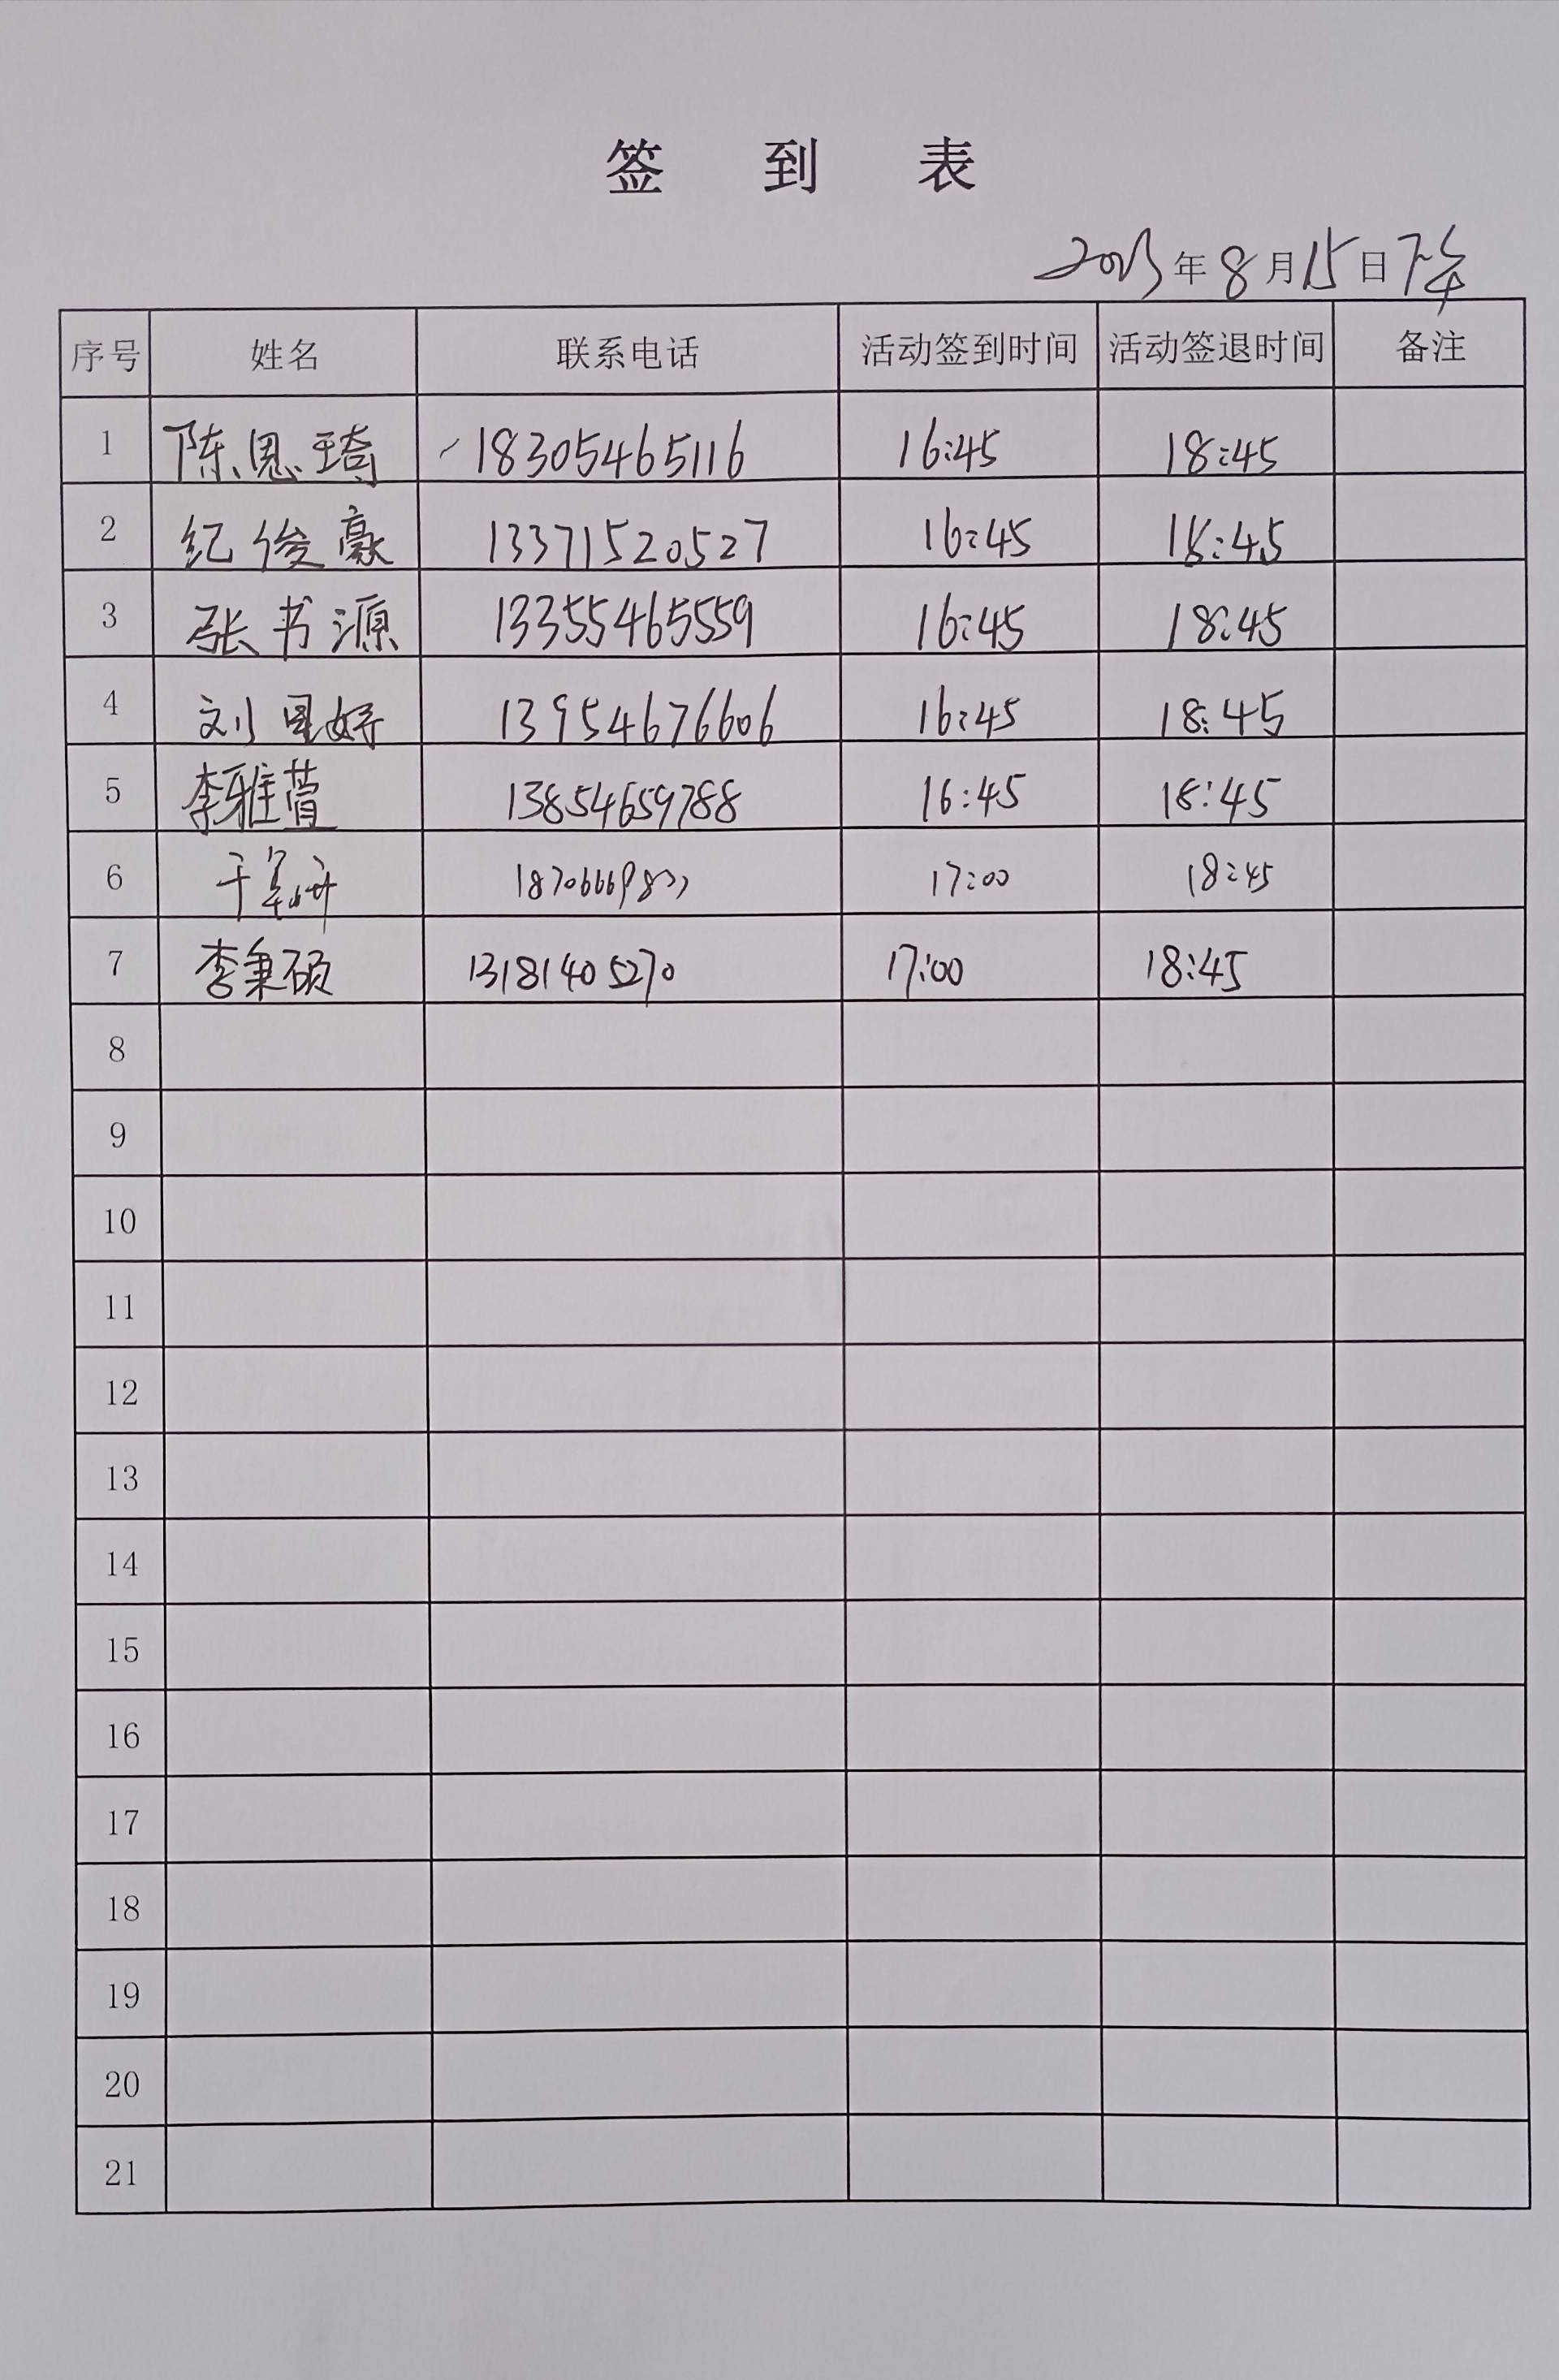 签 到 表
2023年8月15日下午
序号 姓名 联系电话 活动签到时间 活动签退时间 备注
1 陈恩琦 18305465116 16:45 18:45
2 纪俊豪 13371520527 16:45 18:45
3 张书源 13355465559 16:45 18:45
4 刘星妤 13954676606 16:45 18:45
5 李雅萱 13854659788 16:45 18:45
6 17:00 18:45
7 李秉硕 13181405270 17:00 18:45
8
9
10
11
12
13
14
15
16
17
18
19
20
21